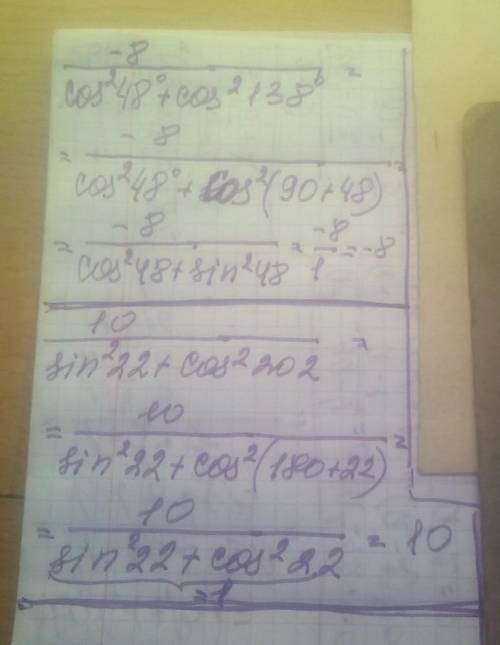 -8
cos²48°+cos²138° =
= -8
cos²48°+cos²(90+48) =
= -8 = -8 = -8
cos²48+sin²48 1
10 =
sin²22+cos²202
= 10 =
sin²22+cos²(180+22)
= 10 = 10
sin²22+cos²22
=1